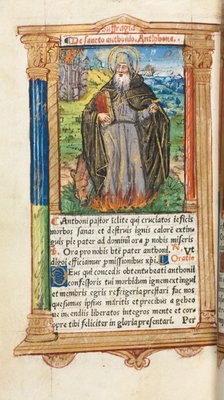 Suffragia.
De sancto anthonio. Antiphona.
Anthoni pastor iclite qui cruciatos reficis
morbos sanas et destruis ignis calorē extin
guis pie pater ad dominū ora p nobis miseris
Ora pro nobis btē pater anthoni. Vt
digni efficiamur pmissionibus xpi. Oratio
Deus qui concedis obtentu beati anthonii
confessoris tui morbidum ignem extingui
et membris egris refrigeria prestari fac nos
quesumus ipsius meritis et precibus a gehen
ne incendiis liberatos integros mente et cor
pore tibi feliciter in gloria presentari. Per